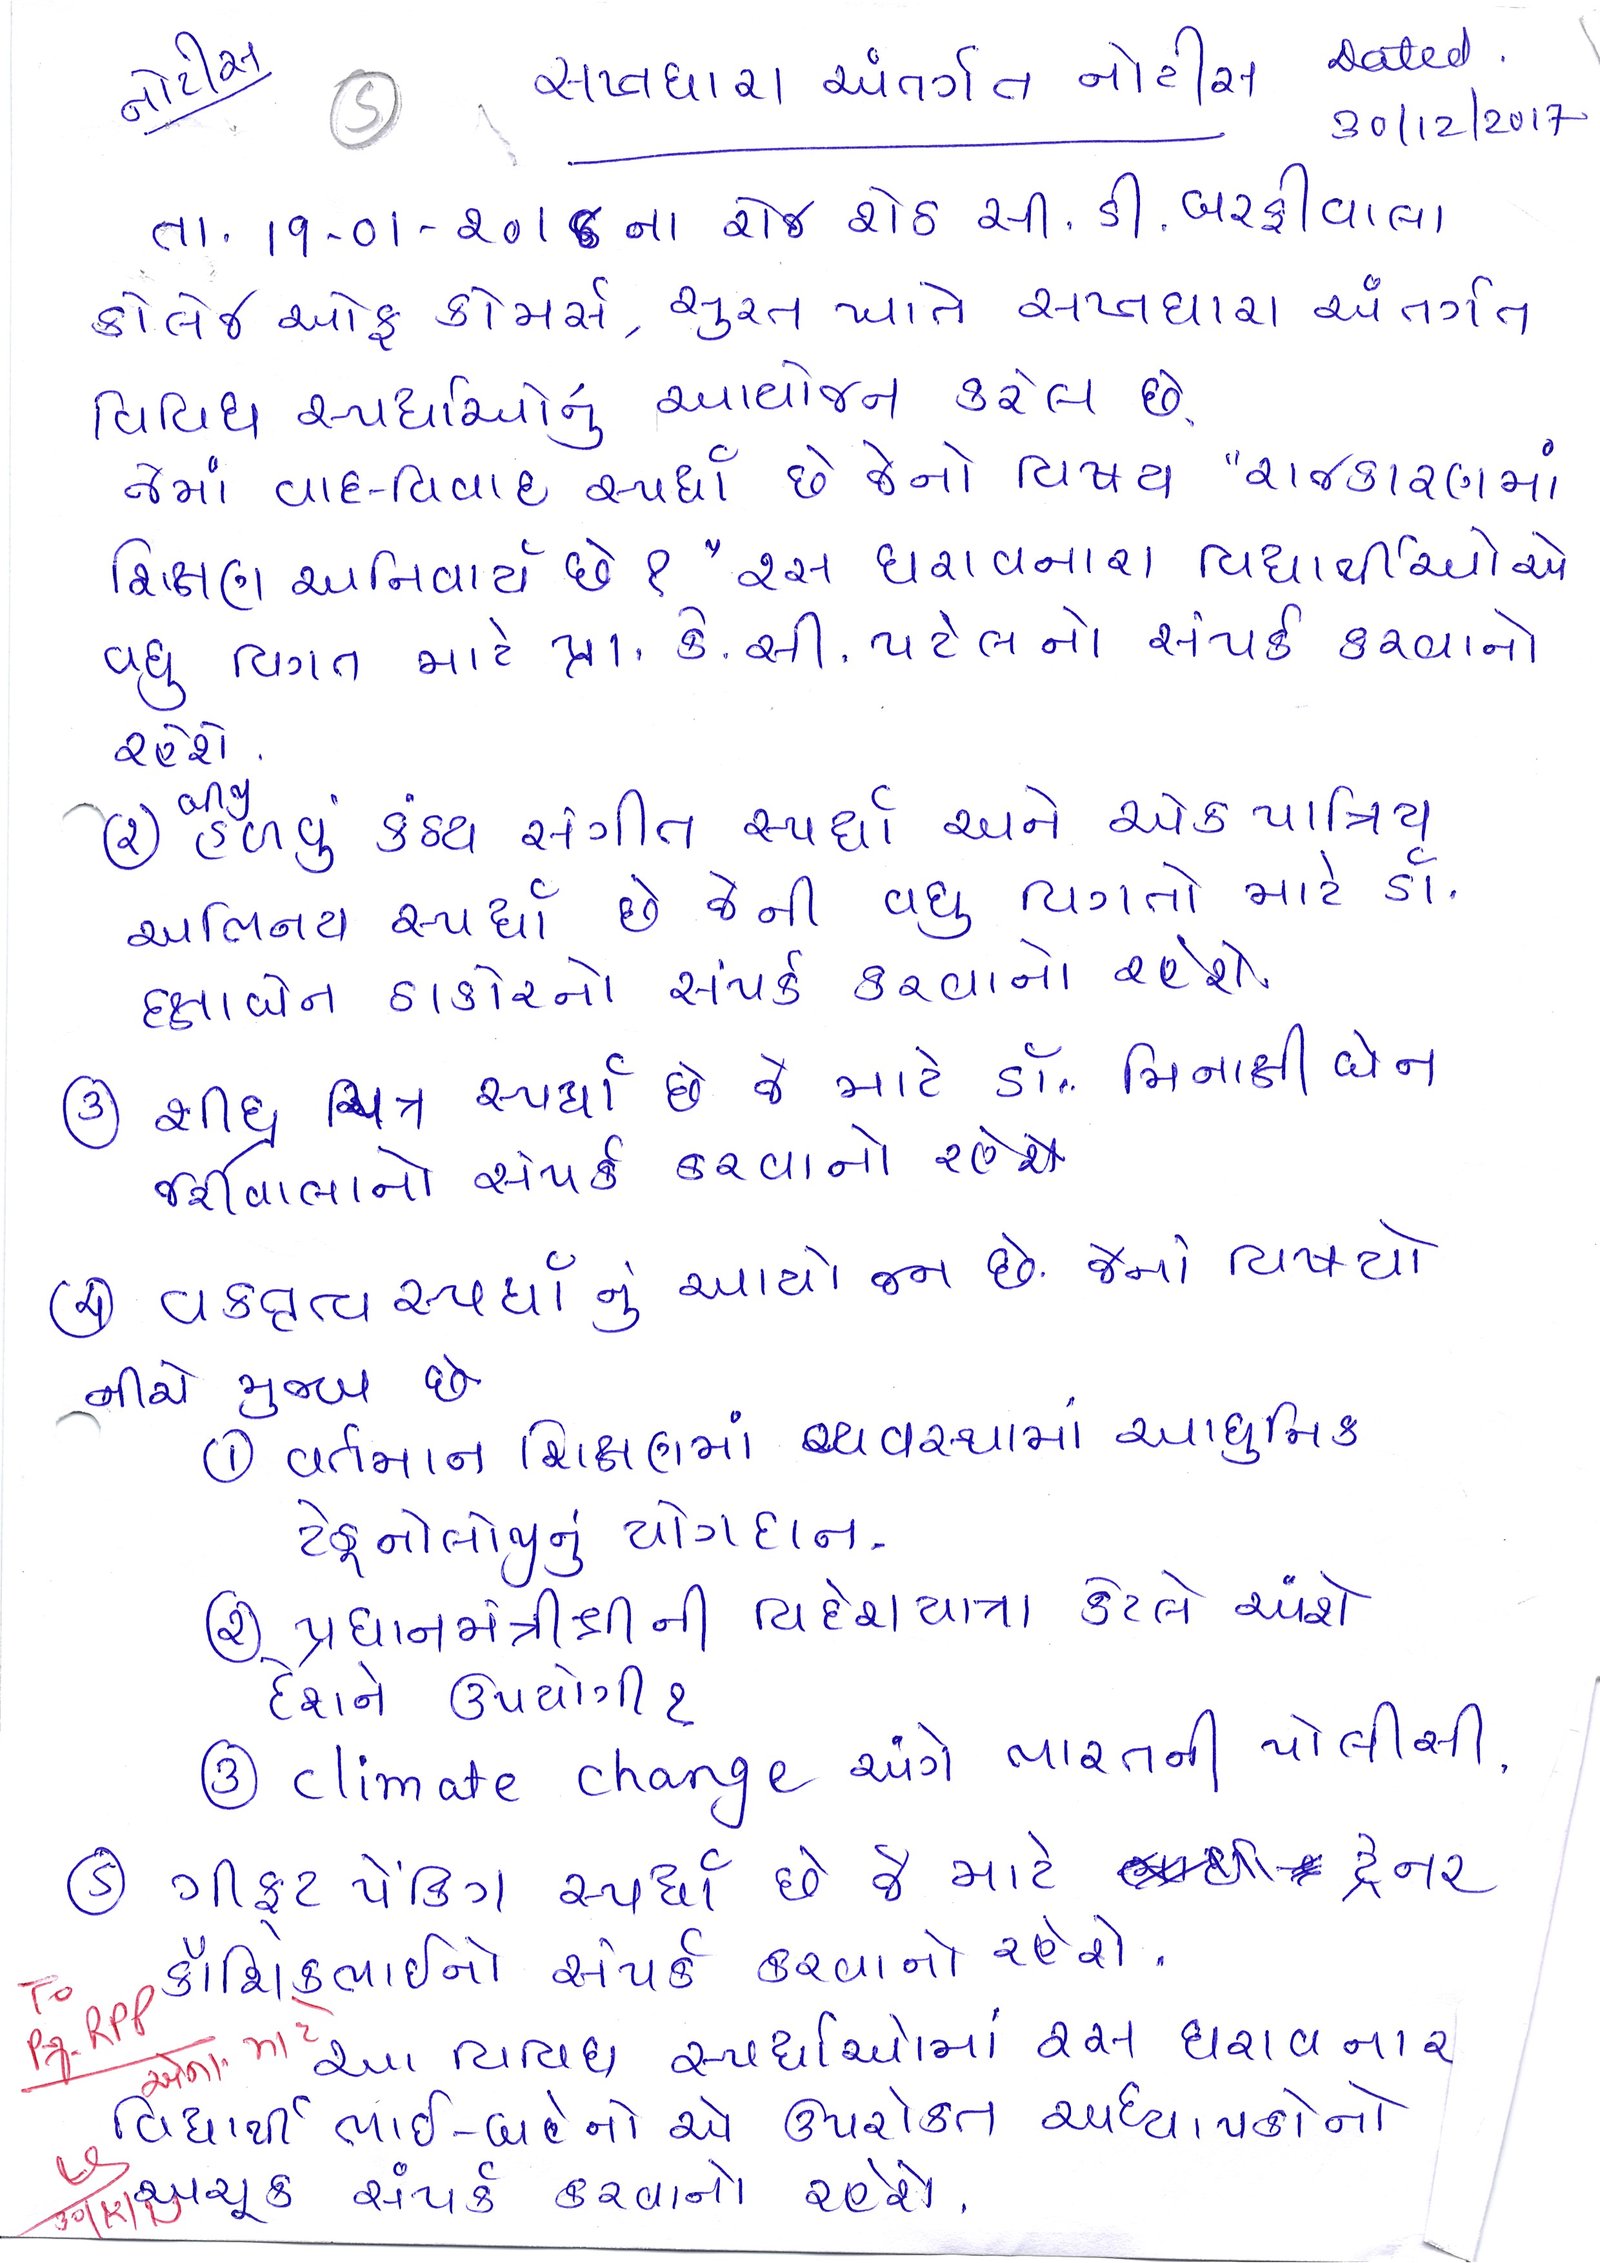 નોટીસ
5
સપ્તધારા અંતર્ગત નોટીસ
Dated.
30/12/2017
તા. 19-01-2018 ના રોજ શેઠ સી. ડી. બરફીવાલા
કોલેજ ઓફ કોમર્સ, સુરત ખાતે સપ્તધારા અંતર્ગત
વિવિધ સ્પર્ધાઓનું આયોજન કરેલ છે.
જેમાં વાદ-વિવાદ સ્પર્ધા છે જેનો વિષય "રાજકારણમાં
શિક્ષણ અનિવાર્ય છે?" રસ ધરાવનારા વિદ્યાર્થીઓએ
વધુ વિગત માટે પ્રા. કે. સી. પટેલનો સંપર્ક કરવાનો
રહેશે.
(૨) બીજુ હળવું કંઠ્ય સંગીત સ્પર્ધા અને એકપાત્રિય
અભિનય સ્પર્ધા છે જેની વધુ વિગતો માટે ડૉ.
દક્ષાબેન ઠાકોરનો સંપર્ક કરવાનો રહેશે.
(૩) શીઘ્ર ચિત્ર સ્પર્ધા છે જે માટે ડૉ. મિનાક્ષીબેન
જરીવાલાનો સંપર્ક કરવાનો રહેશે
(૪) વકતૃત્વ સ્પર્ધાનું આયોજન છે. જેનો વિષયો
નીચે મુજબ છે
(1) વર્તમાન શિક્ષણમાં વ્યવસ્થામાં આધુનિક
ટેક્નોલોજીનું યોગદાન.
(૨) પ્રધાનમંત્રીશ્રીની વિદેશયાત્રા કેટલે અંશે
દેશને ઉપયોગી?
(૩) climate change અંગે ભારતની પોલીસી.
(5) ગીફ્ટ પેકિંગ સ્પર્ધા છે જે માટે ટ્રેનર
કૌશિકભાઈનો સંપર્ક કરવાનો રહેશે.
આ વિવિધ સ્પર્ધાઓમાં રસ ધરાવનાર
વિદ્યાર્થી ભાઈ-બહેનો એ ઉપરોક્ત અધ્યાપકોનો
અચૂક સંપર્ક કરવાનો રહેશે.
To
RPP
માટે